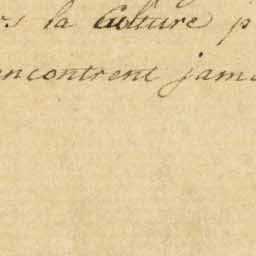 rs la Culture p
encontrent jama